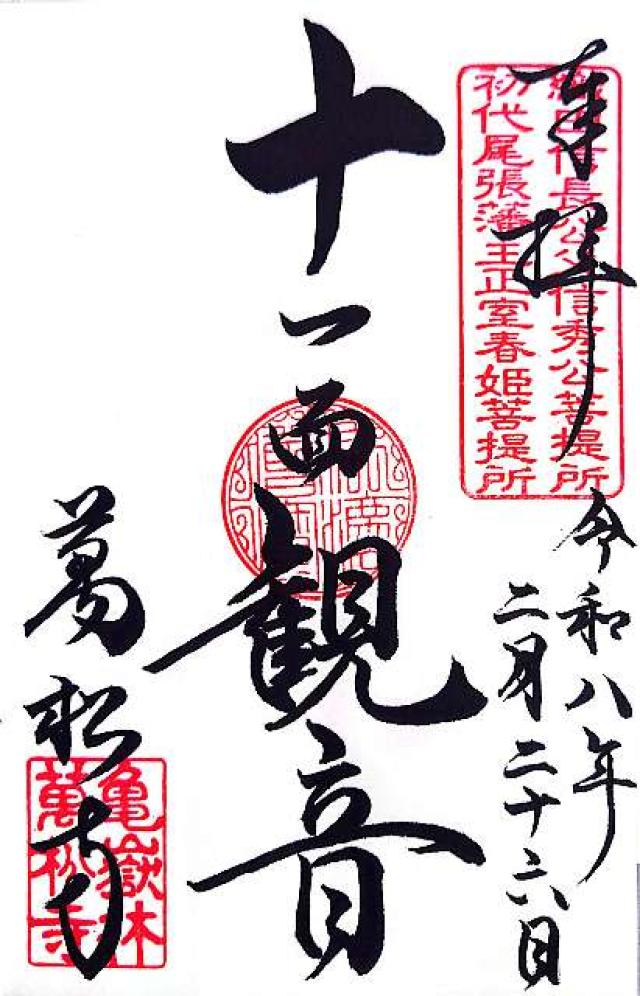 奉拝
織田信長公父信秀公菩提所
初代尾張藩主正室春姫菩提所
令和八年
二月二十六日
十一面観音
萬松寺
亀嶽林
萬松寺